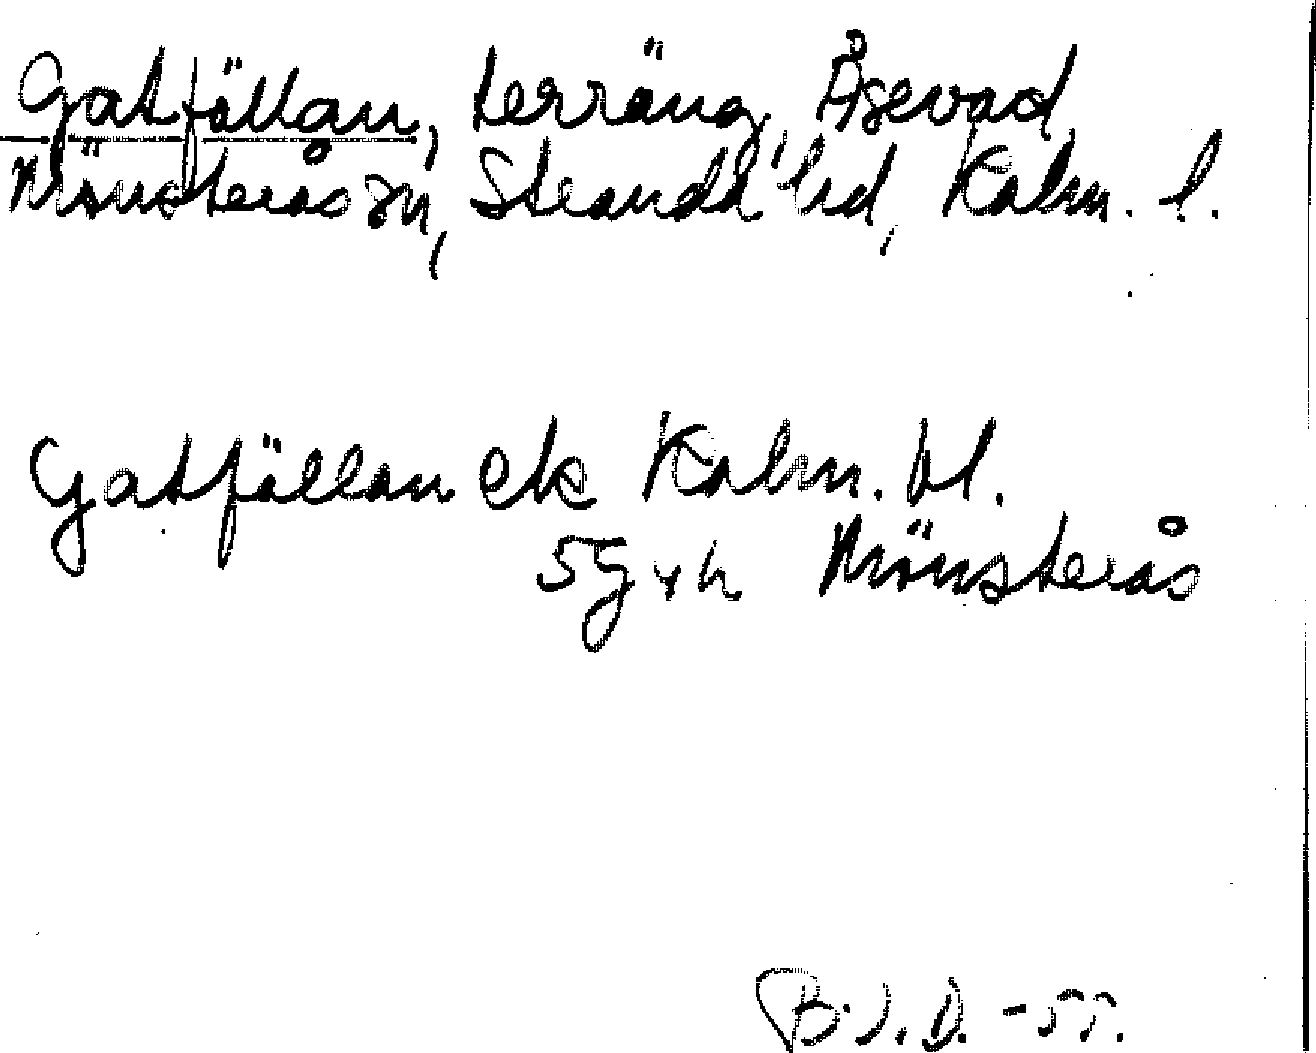 Gatfällan, terräng, Åsevad
Mönsterås sn, Stranda hd, Kalm. l.
Gatfällan ek Kalm. bl.
5g xh Mönsterås
B.J.D. -55.